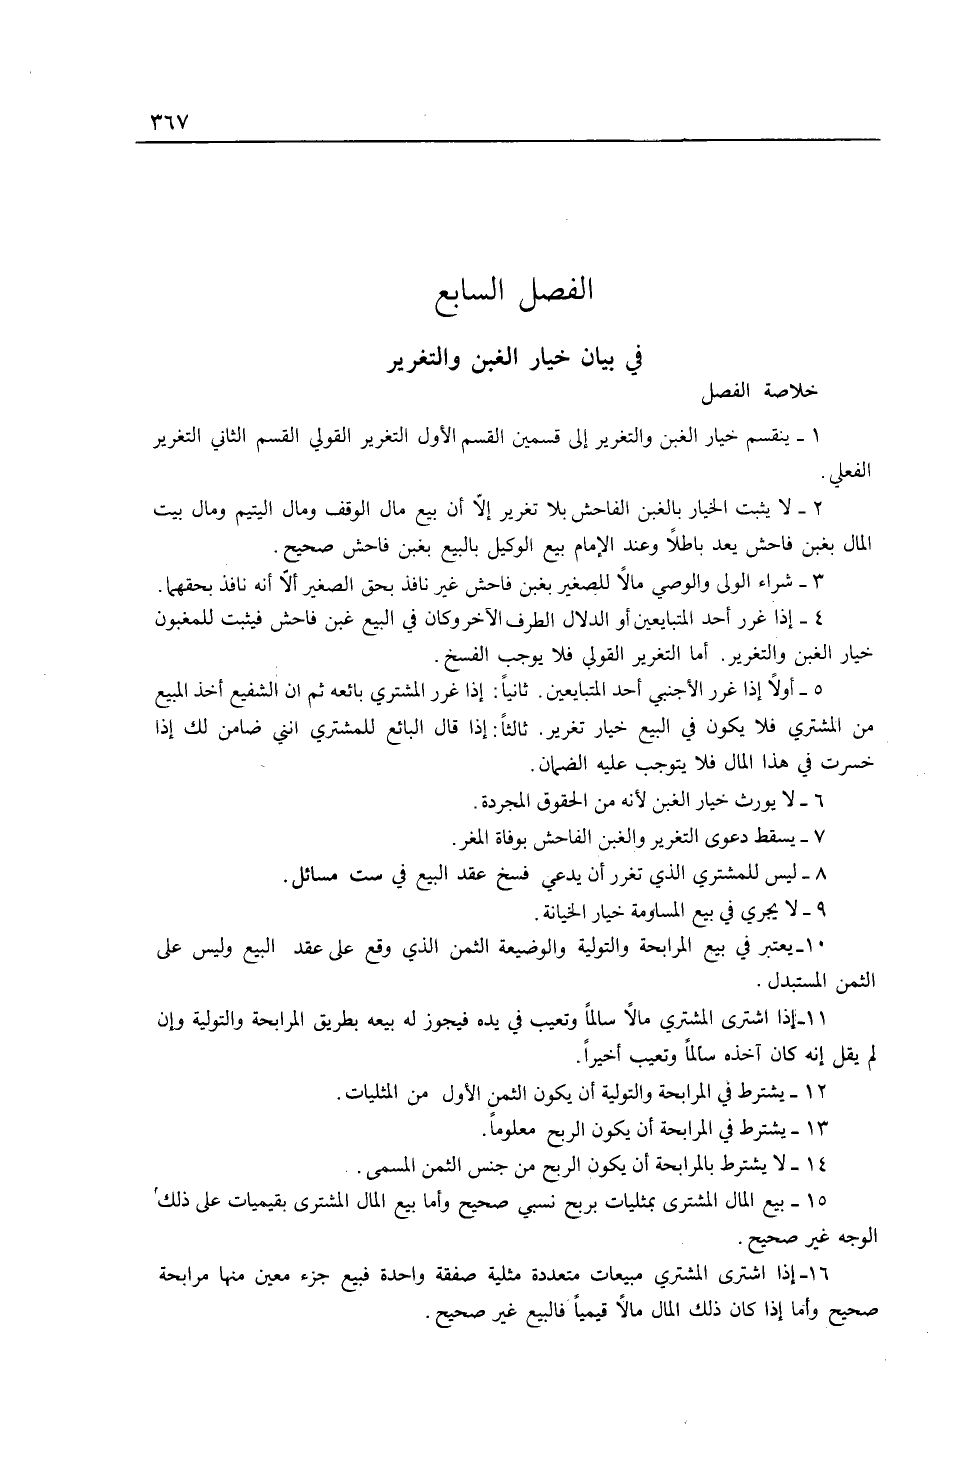 ٣٦٧
الفصل السابع
في بيان خيار الغبن والتغرير
خلاصة الفصل
١ - ينقسم خيار الغبن والتغرير إلى قسمين القسم الأول التغرير القولي القسم الثاني التغرير
الفعلي.
٢ - لا يثبت الخيار بالغبن الفاحش بلا تغرير إلّا أن بيع مال الوقف ومال اليتيم ومال بيت
المال بغبن فاحش يعد باطلاً وعند الإمام بيع الوكيل بالبيع بغبن فاحش صحيح.
٣ - شراء الولى والوصي مالًا للصغير بغبن فاحش غير نافذ بحق الصغير ألّا أنه نافذ بحقهما.
٤ - إذا غرر أحد المتبايعين أو الدلال الطرف الآخر وكان في البيع غبن فاحش فيثبت للمغبون
خيار الغبن والتغرير. أما التغرير القولي فلا يوجب الفسخ.
٥ - أولاً إذا غرر الأجنبي أحد المتبايعين. ثانياً: إذا غرر المشتري بائعه ثم ان الشفيع أخذ المبيع
من المشتري فلا يكون في البيع خيار تغرير. ثالثاً: إذا قال البائع للمشتري انني ضامن لك إذا
خسرت في هذا المال فلا يتوجب عليه الضمان.
٦ - لا يورث خيار الغبن لأنه من الحقوق المجردة.
٧ - يسقط دعوى التغرير والغبن الفاحش بوفاة المغر.
٨ - ليس للمشتري الذي تغرر أن يدعي فسخ عقد البيع في ست مسائل.
٩ - لا يجري في بيع المساومة خيار الخيانة.
١٠- يعتبر في بيع المرابحة والتولية والوضيعة الثمن الذي وقع على عقد البيع وليس على
الثمن المستبدل.
١١- إذا اشترى المشتري مالًا سالماً وتعيب في يده فيجوز له بيعه بطريق المرابحة والتولية وإن
لم يقل إنه كان آخذه سالماً وتعيب أخيراً.
١٢ - يشترط في المرابحة والتولية أن يكون الثمن الأول من المثليات.
١٣ - يشترط في المرابحة أن يكون الربح معلوماً.
١٤ - لا يشترط بالمرابحة أن يكون الربح من جنس الثمن المسمى.
١٥ - بيع المال المشترى بمثليات بربح نسبي صحيح وأما بيع المال المشترى بقيميات على ذلك
الوجه غير صحيح.
١٦- إذا اشترى المشتري مبيعات متعددة مثلية صفقة واحدة فبيع جزء معين منها مرابحة
صحيح وأما إذا كان ذلك المال مالًا قيمياً فالبيع غير صحيح.